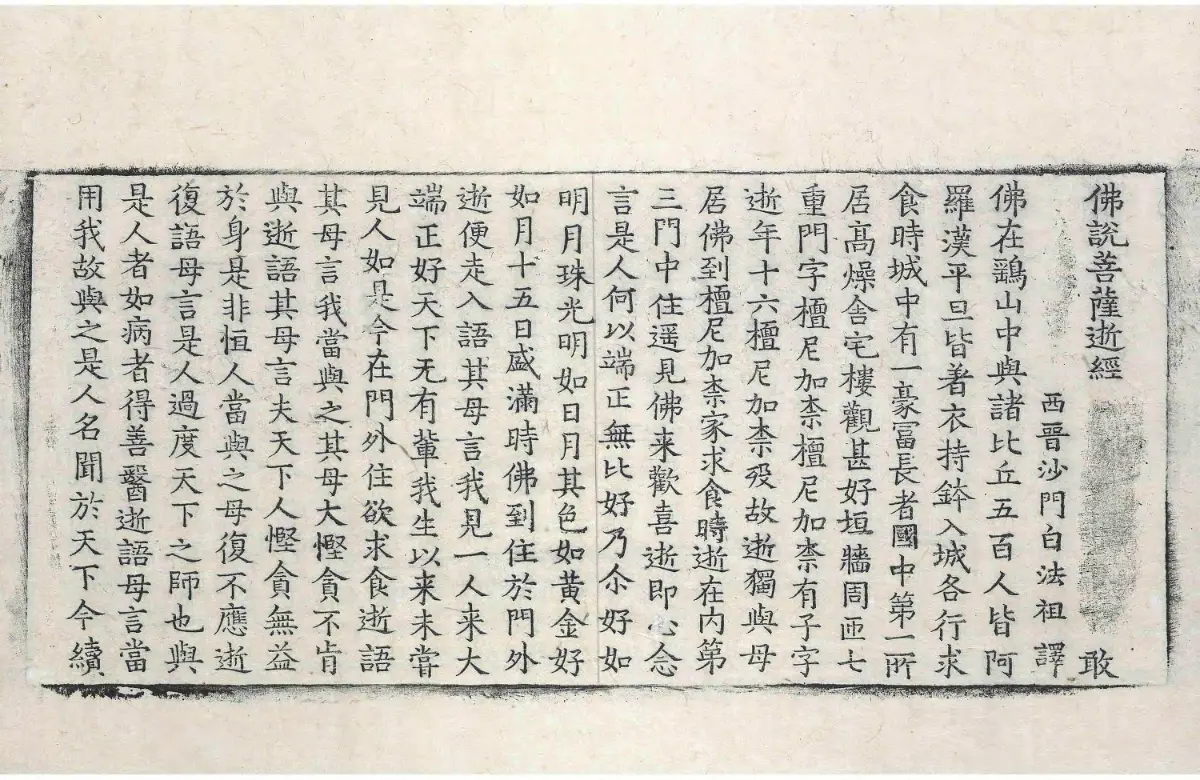 佛說菩薩逝經 敢
西晉沙門白法祖譯
佛在鷂山中與諸比丘五百人皆阿
羅漢平旦皆著衣持鉢入城各行求
食時城中有一豪冨長者國中第一所
居高燥舎宅樓觀甚好垣牆周匝七
重門字檀尼加柰檀尼加柰有子字
逝年十六檀尼加柰歿故逝獨與母
居佛到檀尼加柰家求食時逝在内第
三門中住遥見佛来歡喜逝即心念
言是人何以端正無比好乃尒好如
明月珠光明如日月其色如黄金好
如月十五日盛滿時佛到住於門外
逝便走入語其母言我見一人来大
端正好天下无有軰我生以来未甞
見人如是今在門外住欲求食逝語
其母言我當與之其母大慳貪不肯
與逝語其母言夫天下人慳貪無益
於身是非恒人當與之母復不應逝
復語母言是人過度天下之師也與
是人者如病者得善醫逝語母言當
用我故與之是人名聞於天下今續